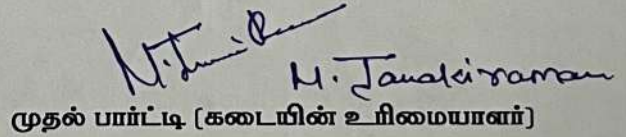 M. Janakiraman
முதல் பார்ட்டி (கடையின் உரிமையாளர்)